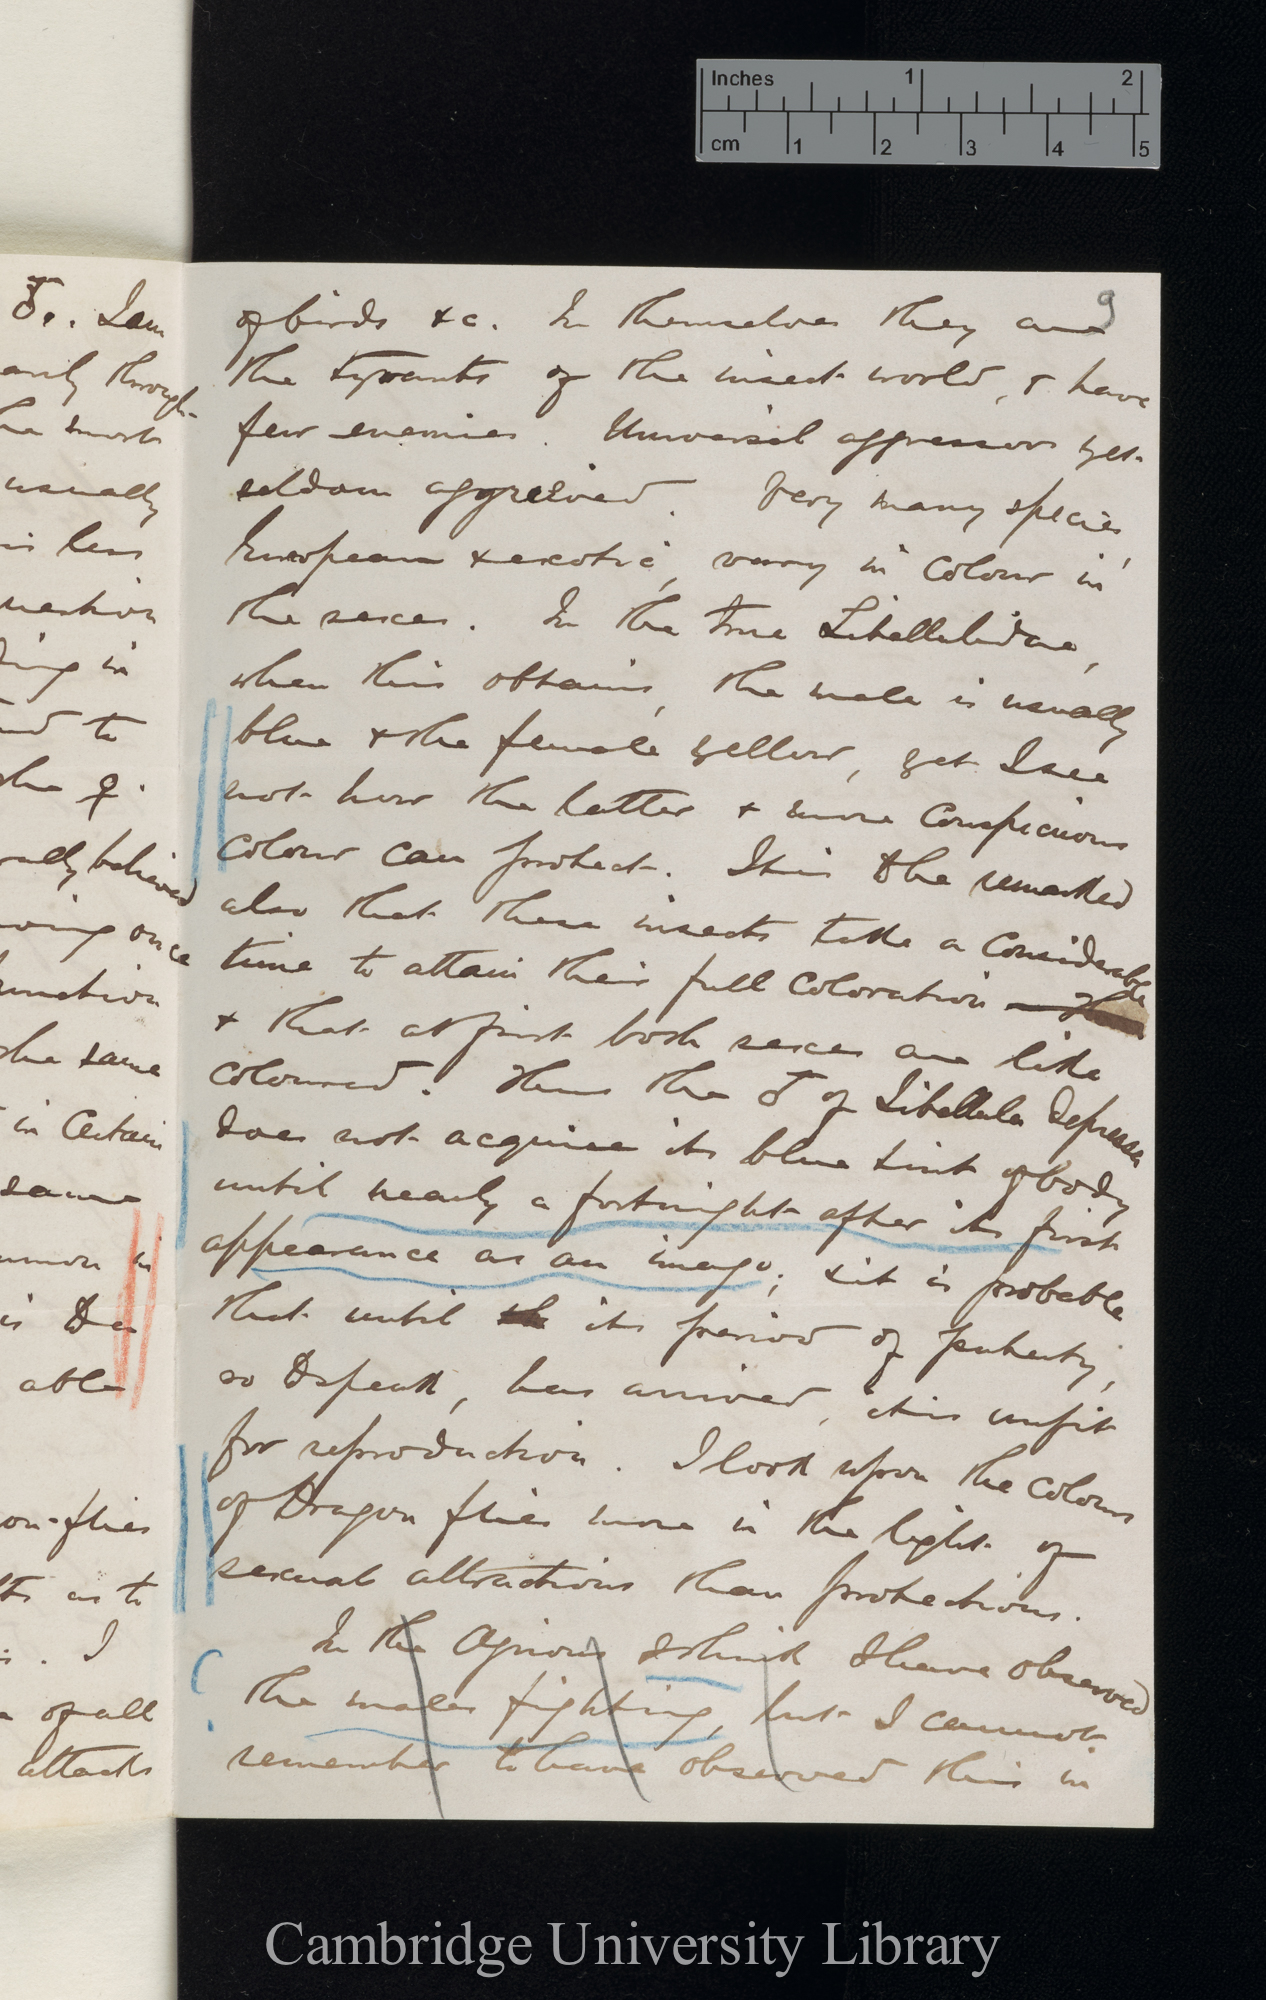 Inches 1 2
cm 1 2 3 4 5
9
♂. I am
through-
usually
is less
ing in
to
the ♀.
believed
once
the same
in certain
same
in
is
able
on-flies
as to
. I
of all
attacks
of birds &c. In themselves they are
the tyrants of the insect world, & have
few enemies. Universal aggressors yet
seldom aggrieved. Very many species,
European & exotic, vary in colour in
the sexes. In the true Libellulidae,
when this obtains, the male is usually
blue & the female yellow, yet I see
not how the latter & more conspicuous
colour can protect. It is to be remarked
also that these insects take a considerable
time to attain their full coloration
& that at first both sexes are like
coloured. Thus the ♂ of Libellula depressa
does not acquire its blue tint of body
until nearly a fortnight after its first
appearance as an imago; & it is probable
that until its period of puberty,
so to speak, has arrived, it is unfit
for reproduction. I look upon the colours
of Dragon flies more in the light of
sexual attractions than protections.
In the Agrions I think I have observed
the males fighting, but I cannot
remember to have observed this in
Cambridge University Library